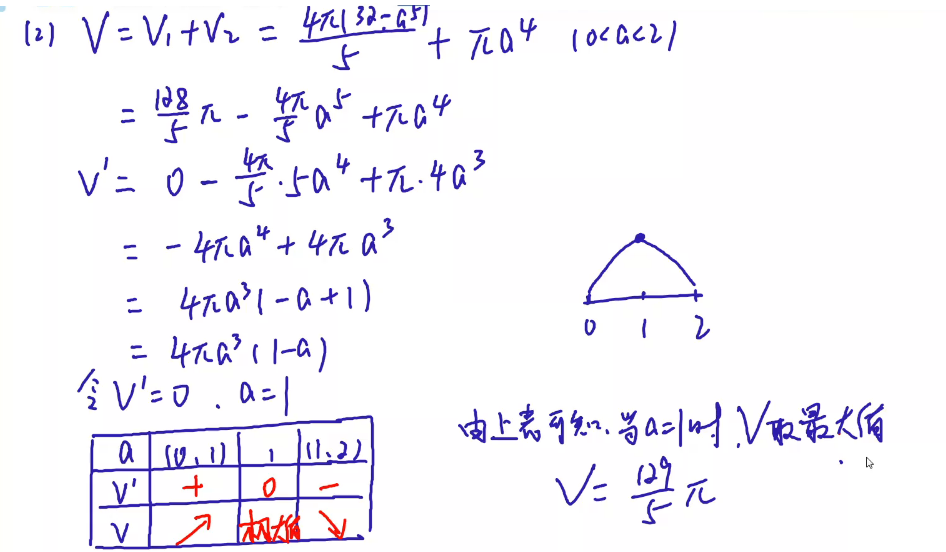 (2) V = V₁ + V₂ = 4π(32-a⁵)/5 + πa⁴ (0<a<2)
= 128/5 π - 4π/5 a⁵ + πa⁴
V' = 0 - 4π/5 · 5a⁴ + π·4a³
= -4πa⁴ + 4πa³
= 4πa³(-a+1)
= 4πa³(1-a)
令 V'=0 . a=1
a (0,1) 1 (1,2)
V' + 0 -
V ↗ 极大值 ↘
0 1 2
由上表可知, 当a=1时, V取最大值
V = 129/5 π